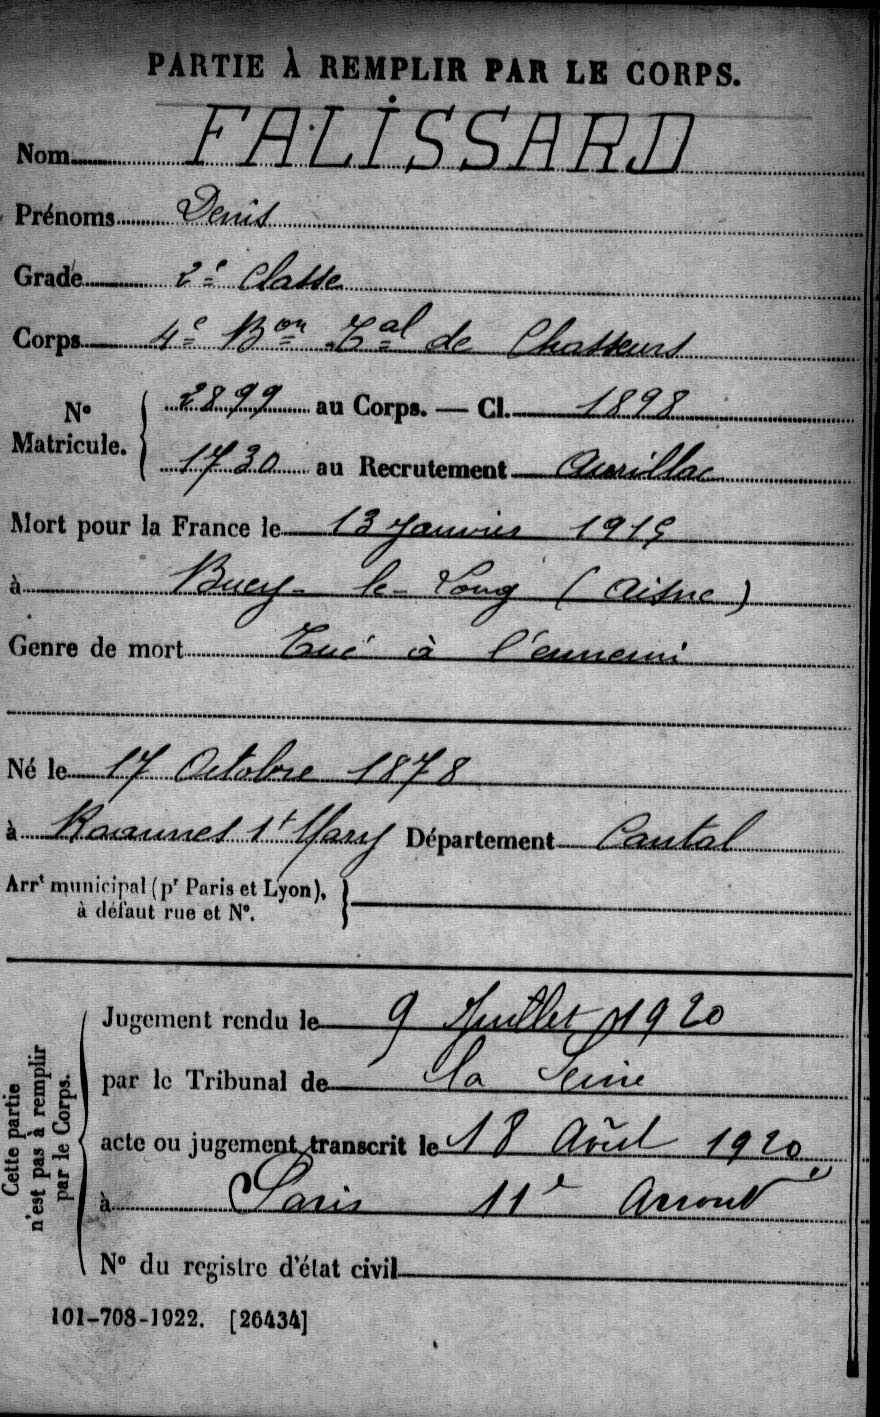 PARTIE À REMPLIR PAR LE CORPS.
Nom FALISSARD
Prénoms Denis
Grade 2e Classe
Corps 4e Bon Tal de Chasseurs
No Matricule. { 2899 au Corps. — Cl. 1898
1730 au Recrutement Aurillac
Mort pour la France le 13 Janvier 1915
à Bucy-le-Long (Aisne)
Genre de mort Tué à l'ennemi
Né le 17 Octobre 1878
à Roannes St Mary Département Cantal
Arrt municipal (pr Paris et Lyon),
à défaut rue et No.
Cette partie n'est pas à remplir par le Corps.
Jugement rendu le 9 Juillet 1920
par le Tribunal de la Seine
acte ou jugement transcrit le 18 Août 1920
à Paris 11e Arrondt
No du registre d'état civil
101-708-1922. [26434]